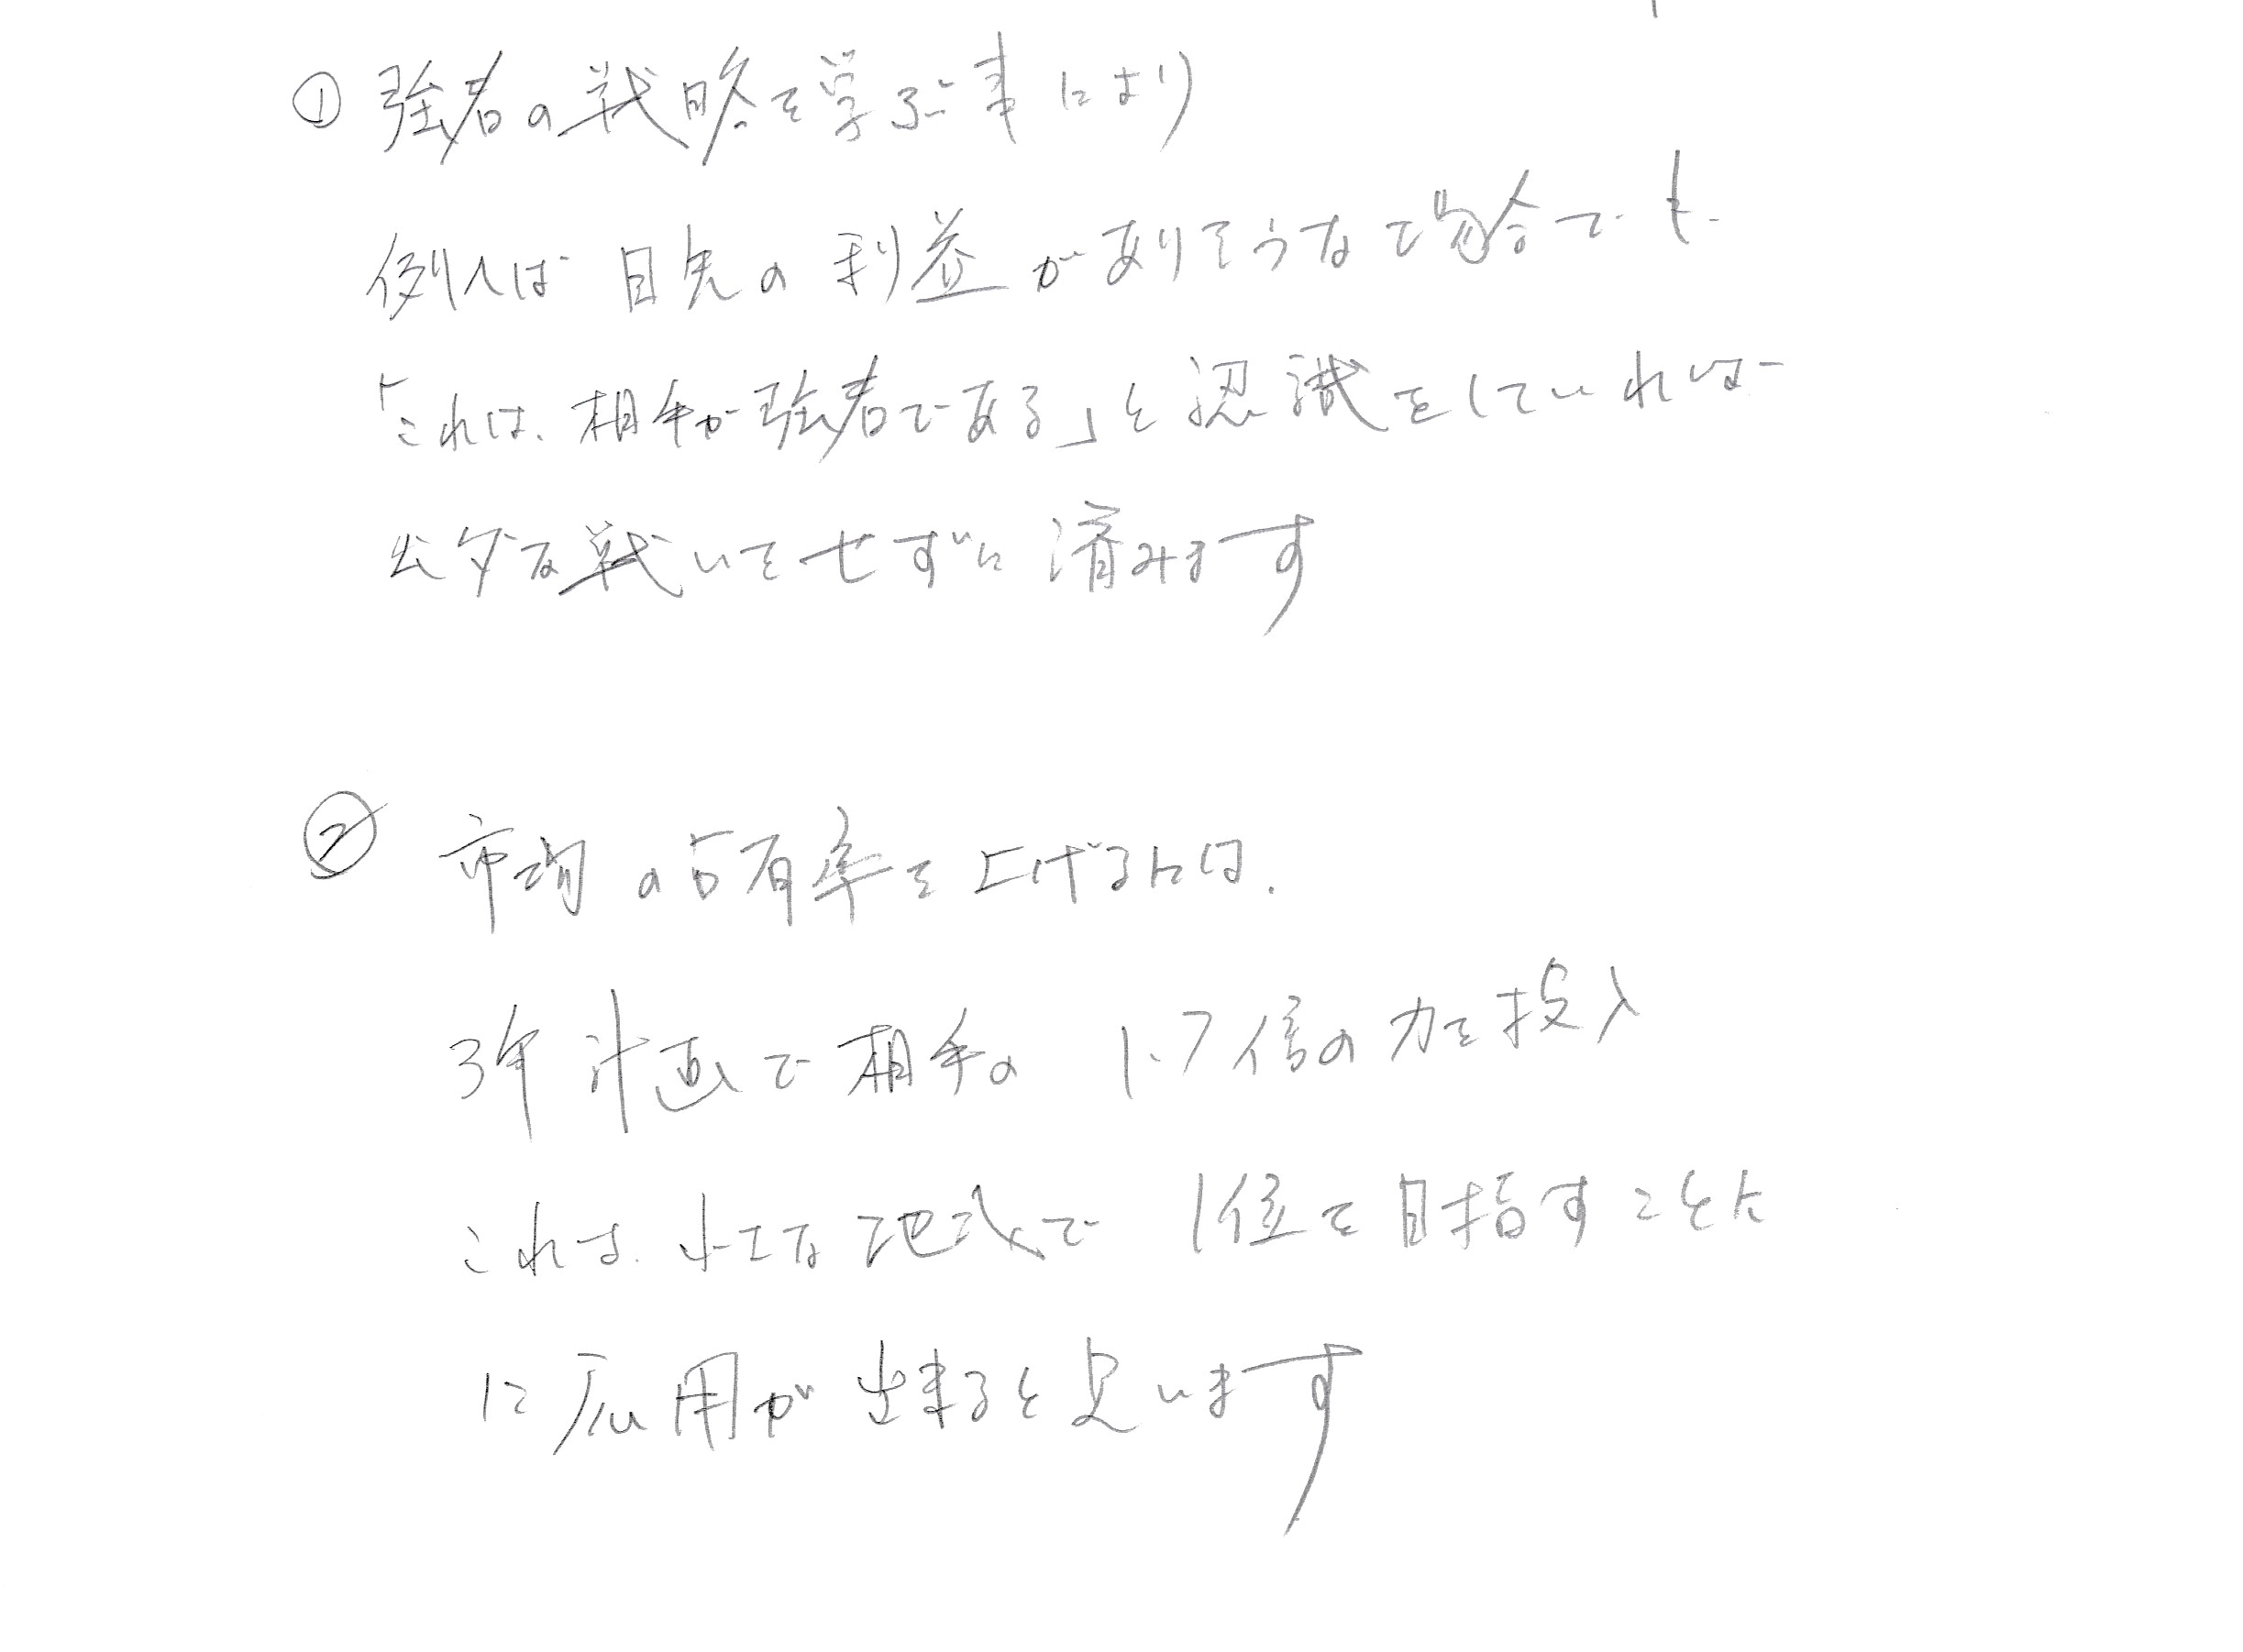 ① 強者の戦略を学ぶ事により
例へば 目先の 利益がありそうな場合でも、
「これは、相手が強者である」と認識をしていれば
ムダな戦いをせずに済みます
② 市場の占有率を上げるには、
3年計画で相手の 1.7倍の力を投入
これは、小さな地域で 1位を目指すことに
に応用が出来ると思います